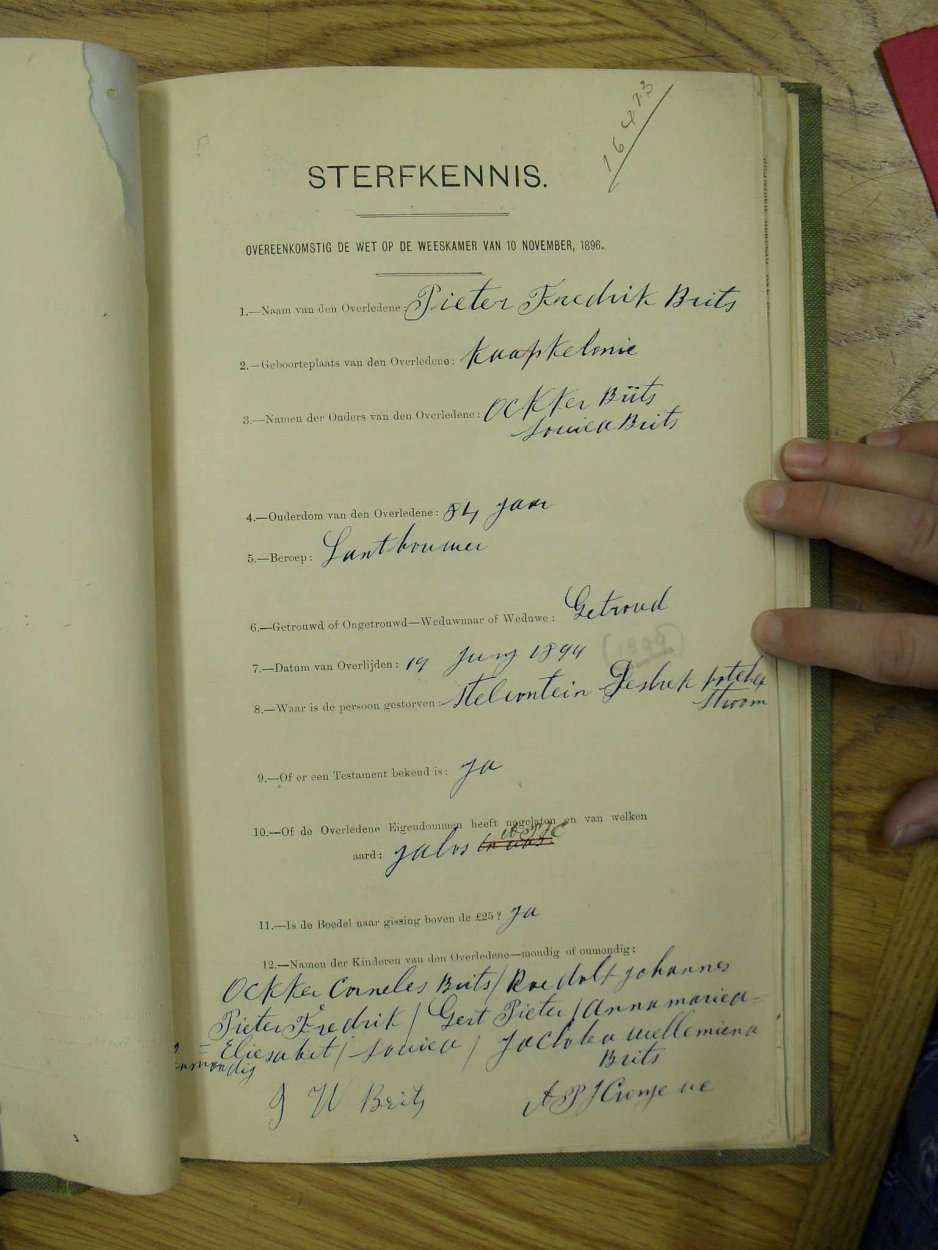 16473
STERFKENNIS.
OVEREENKOMSTIG DE WET OP DE WEESKAMER VAN 10 NOVEMBER, 1896.
1.—Naam van den Overledene: Pieter Fredrik Brits
2.—Geboorteplaats van den Overledene: Kaapkelonie
3.—Namen der Ouders van den Overledene: Ockker Brits
Louiea Brits
4.—Ouderdom van den Overledene: 84 jaar
5.—Beroep: Lantbouwer
6.—Getrouwd of Ongetrouwd—Weduwnaar of Weduwe: Getroud
7.—Datum van Overlijden: 19 Juny 1899 (1899)
8.—Waar is de persoon gestorven: potchef
stroom
9.—Of er een Testament bekend is: ja
10.—Of de Overledene Eigendommen heeft nagelaten en van welken
aard:
11.—Is de Boedel naar gissing boven de £25? ja
12.—Namen der Kinderen van den Overledene—mondig of onmondig:
Ockker Corneles Brits / Roedolf Johannes
Pieter Fredrik / Gert Pieter / Anna mariea
= Eliesabet / Louiea / Jacoba wellemiena
onmondig Brits
J W Brits A P J Cronje